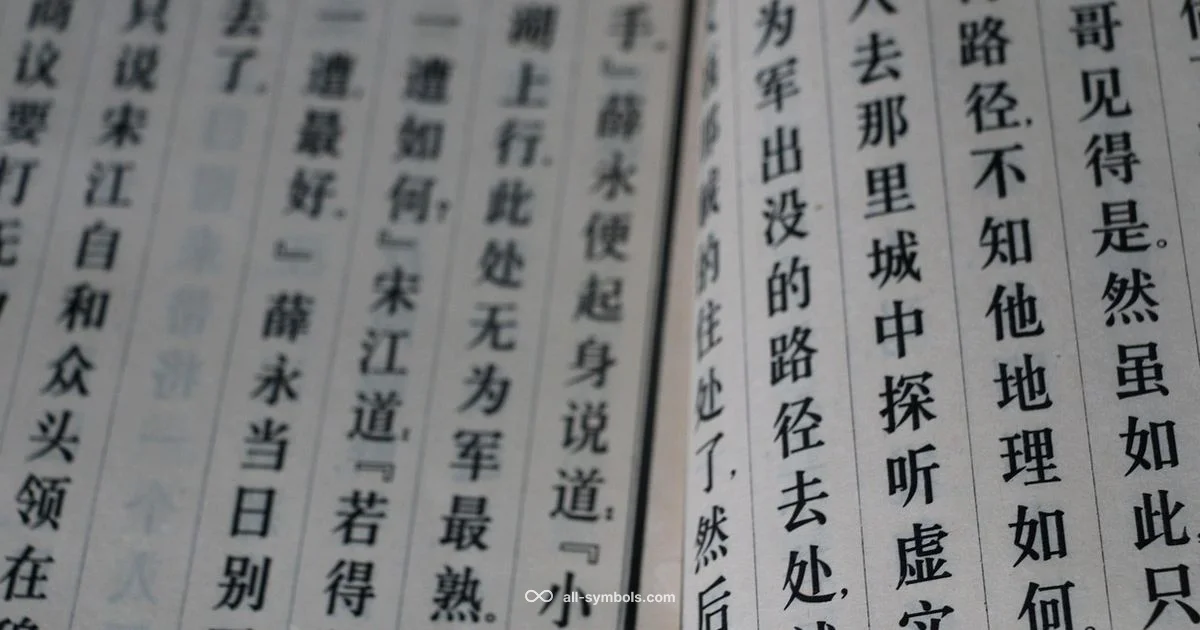 哥见得是。然虽如此,只
路径,不知他地理如何。
人去那里城中探听虚实
为军出没的路径去处,
的住处了,然后
手。』薛永便起身说道:『小
湖上行。此处无为军最熟。
一遭如何?』宋江道:『若得
一遭,最好。』薛永当日别
去了。
只说宋江自和众头领在
商议要打无
all-symbols.com